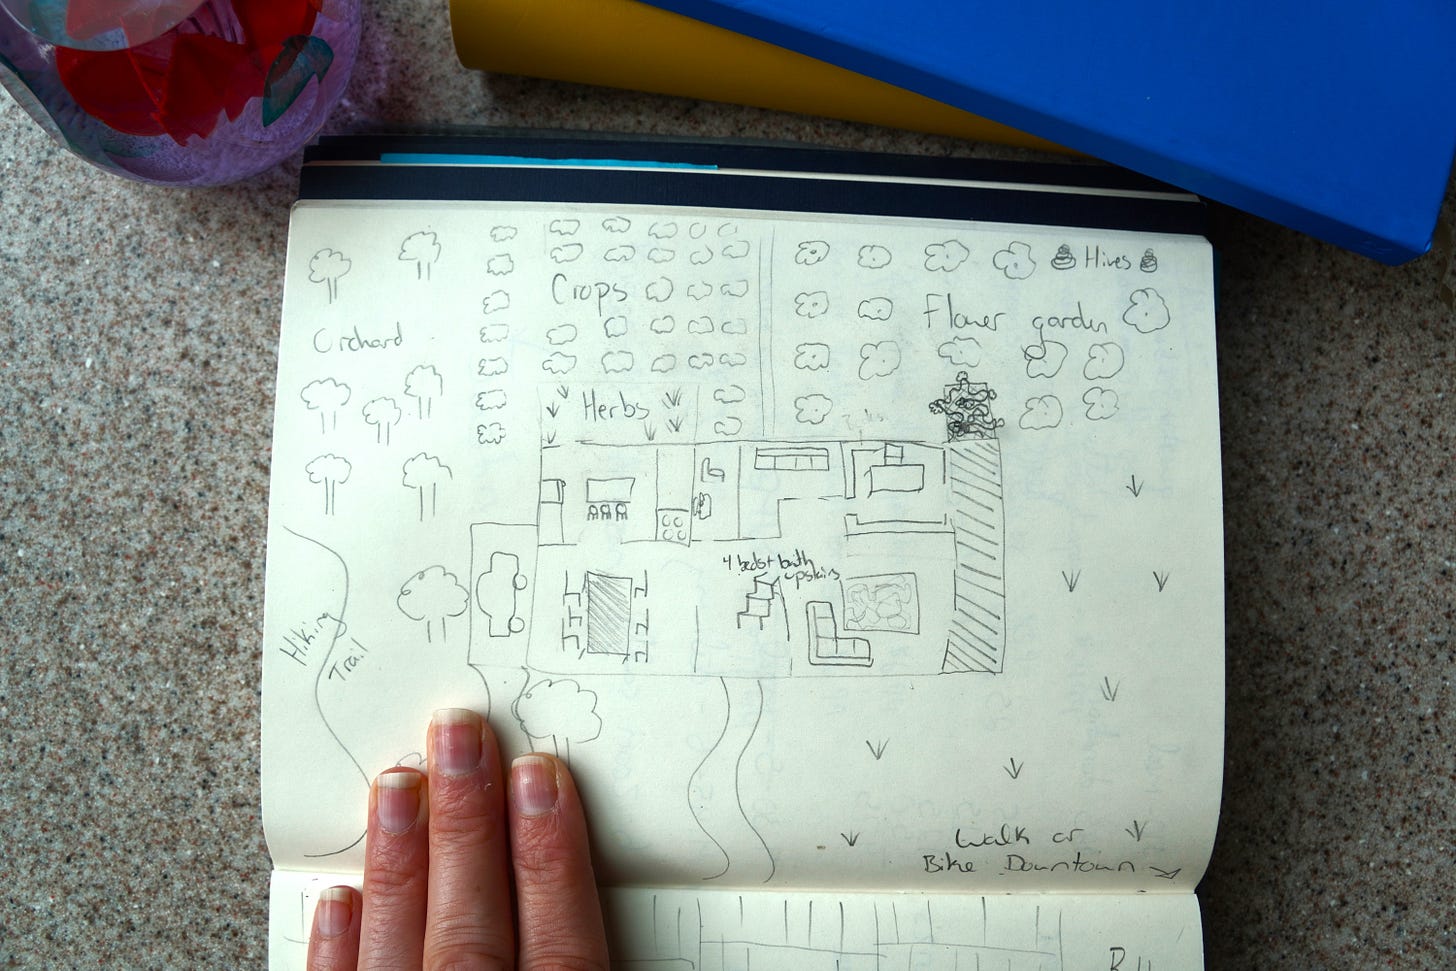 Hives
Crops
Flower garden
Orchard
Herbs
4 beds + bath
upstairs
Hiking
Trail
Walk or
Bike Downtown